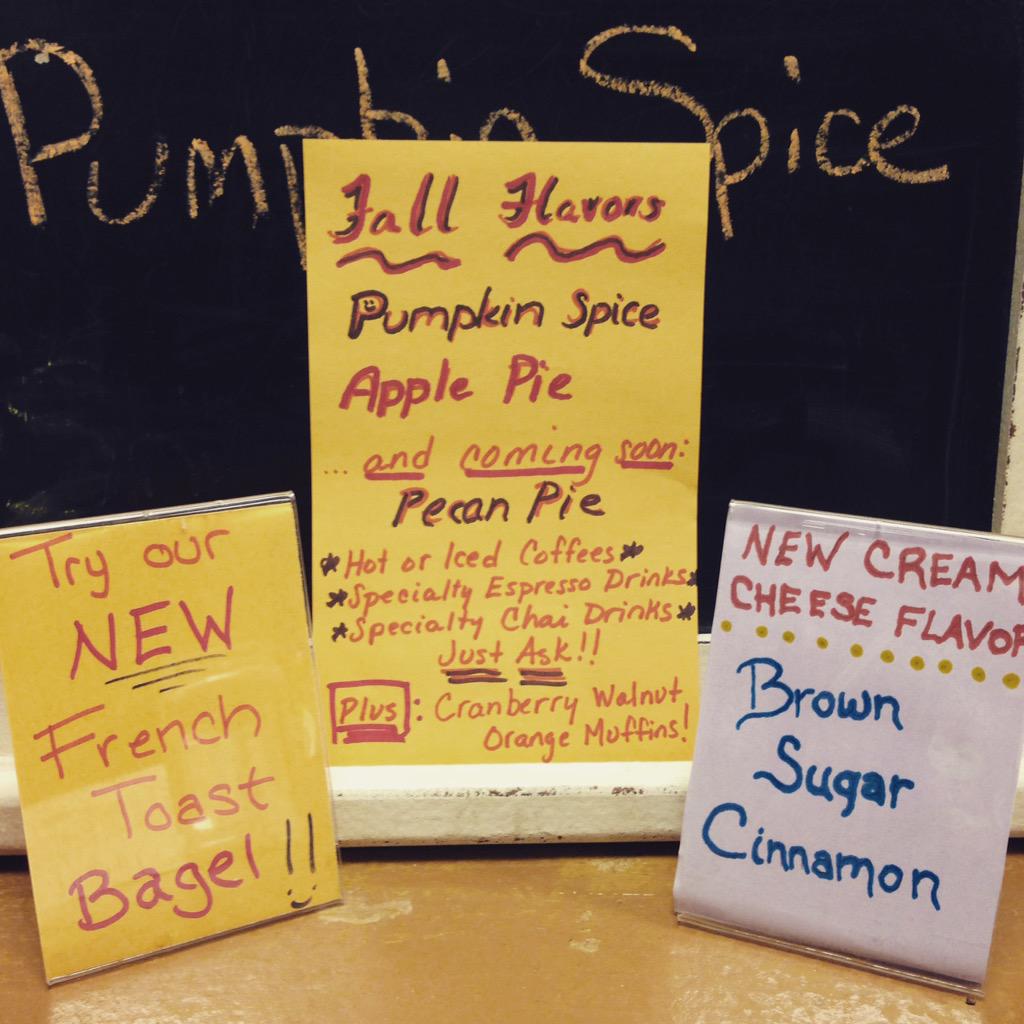 Pumpkin Spice
Fall Flavors
Pumpkin Spice
Apple Pie
... and coming soon:
Pecan Pie
*Hot or Iced Coffees*
*Specialty Espresso Drinks*
*Specialty Chai Drinks*
Just Ask!!
Plus: Cranberry Walnut
Orange Muffins!
Try our
NEW
French
Toast
Bagel!!
NEW CREAM
CHEESE FLAVOR
Brown
Sugar
Cinnamon